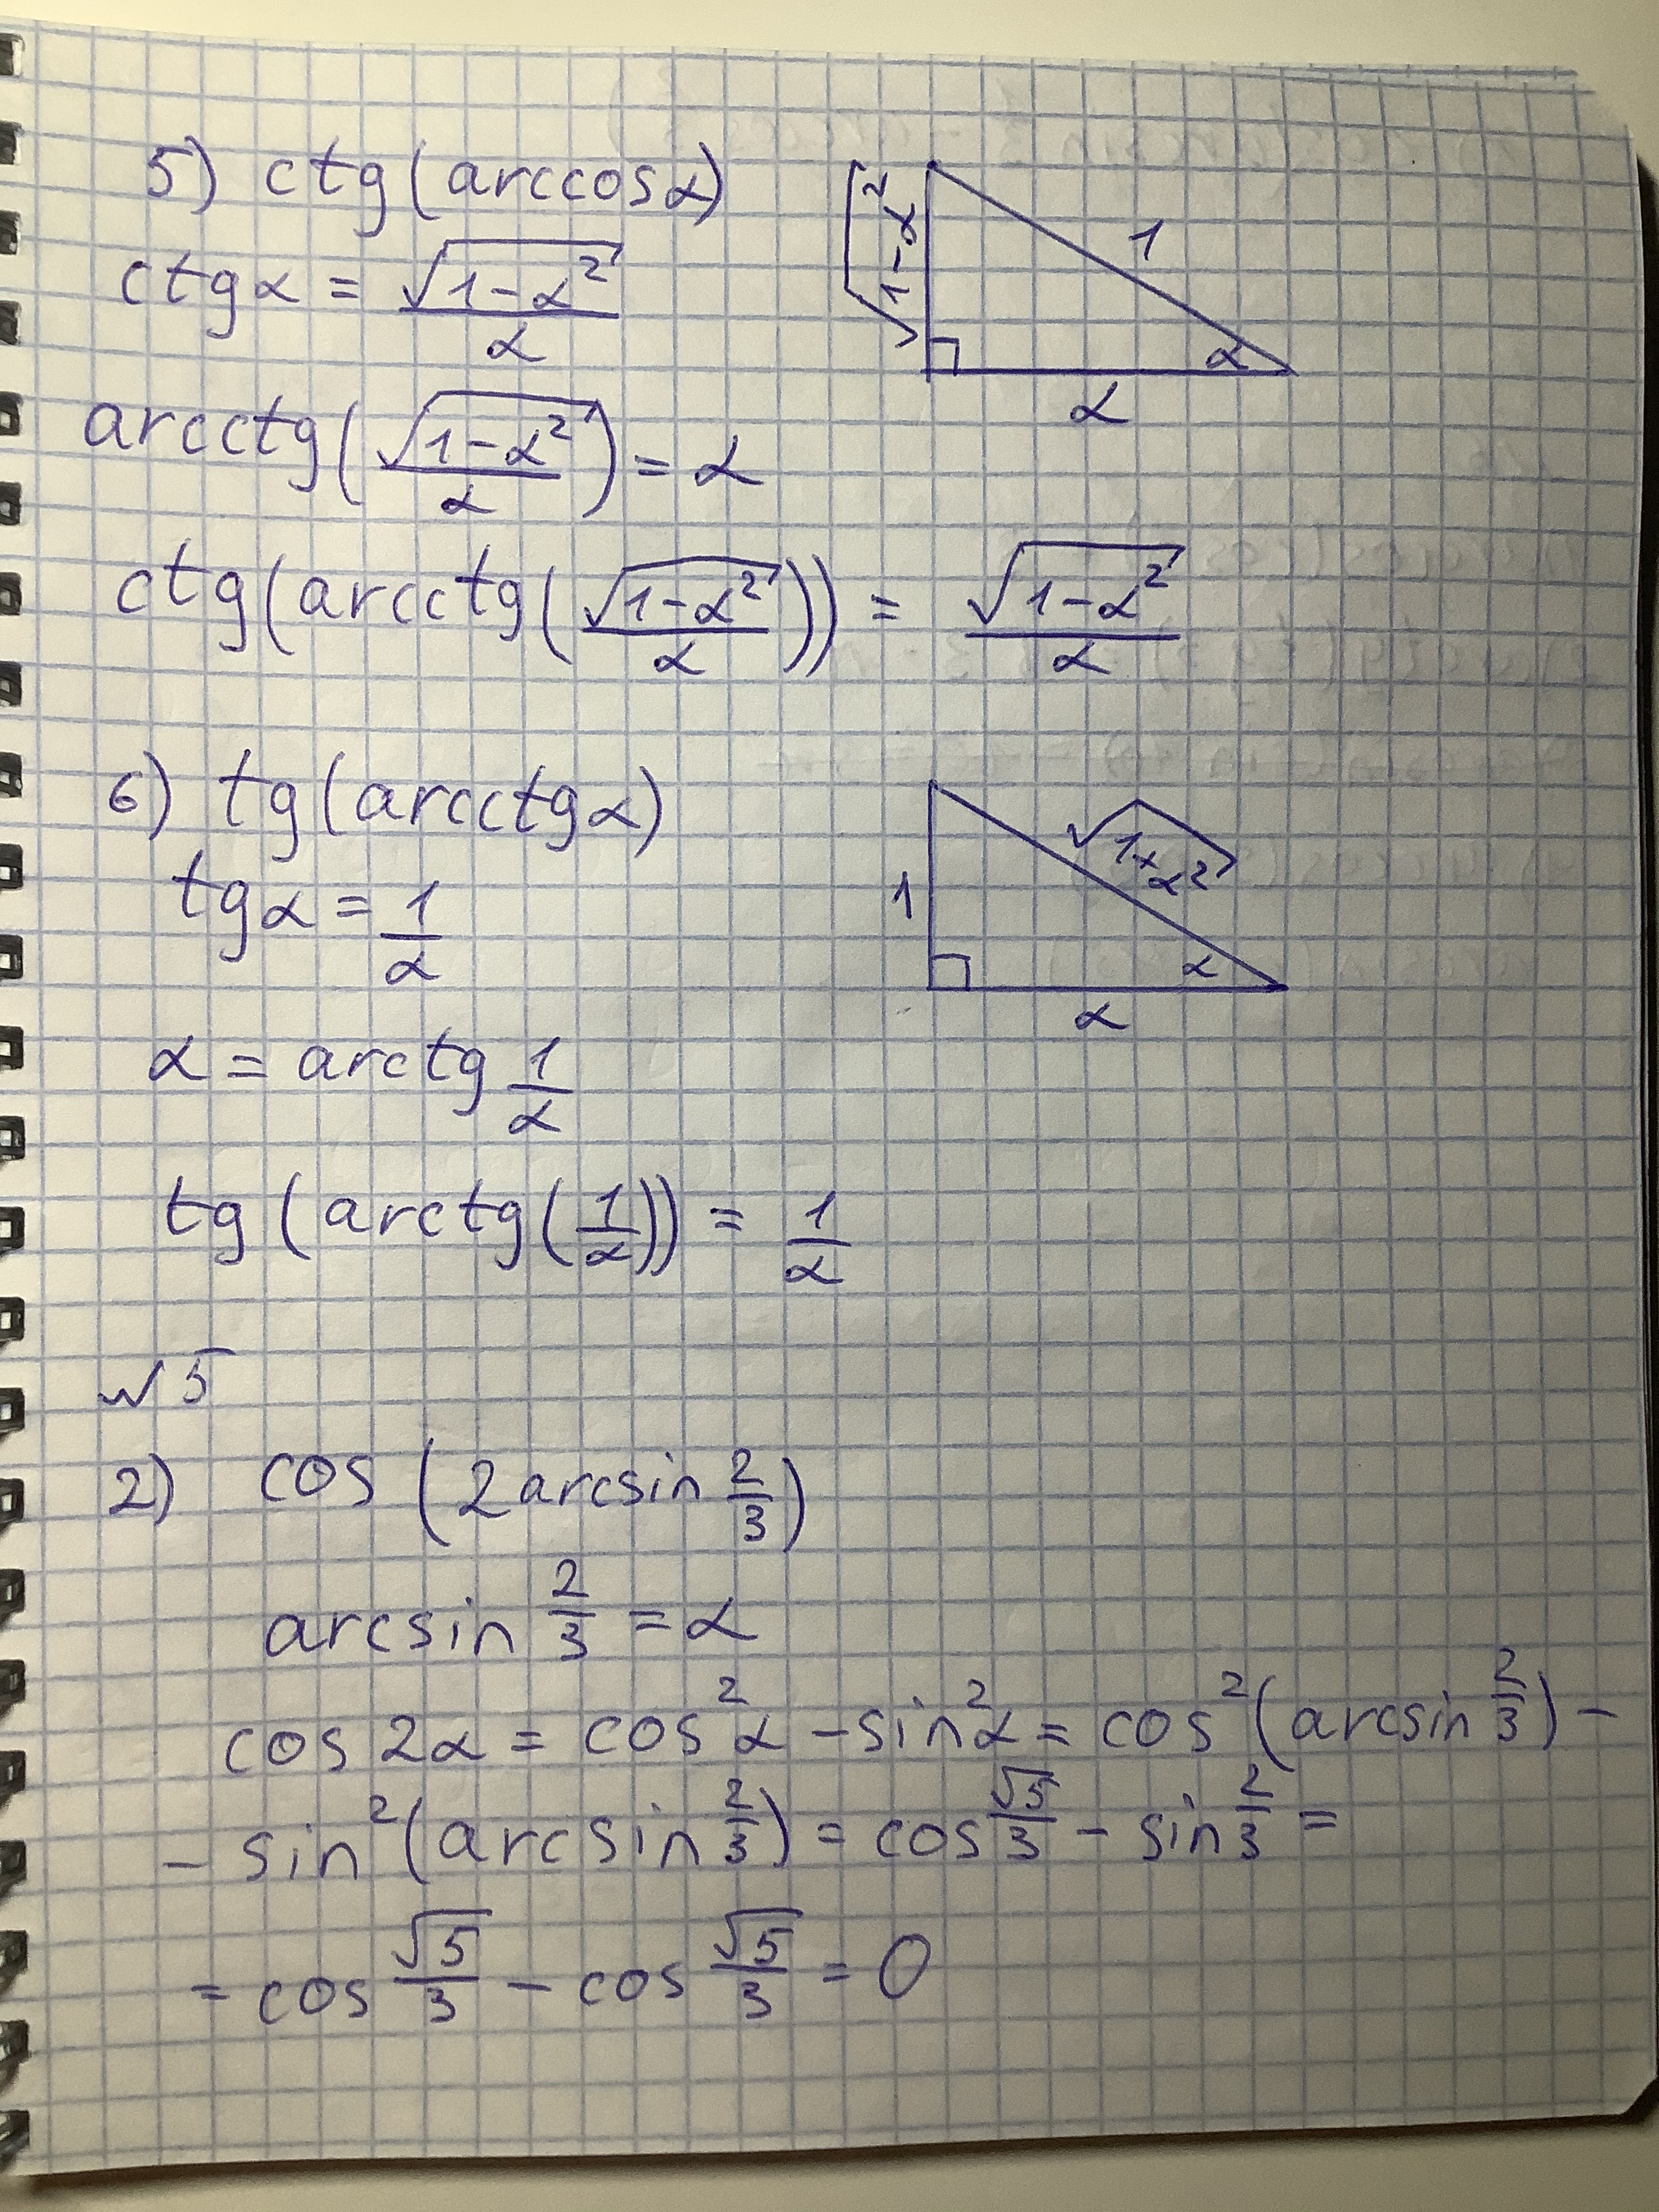 5) ctg(arccosα)
√1-α²
1
α
α
ctgα = √(1-α²)/α
arcctg(√(1-α²)/α) = α
ctg(arcctg(√(1-α²)/α)) = √(1-α²)/α
6) tg(arcctgα)
√1+α²
1
α
α
tgα = 1/α
α = arctg 1/α
tg(arctg(1/α)) = 1/α
№5
2) cos(2arcsin 2/3)
arcsin 2/3 = α
cos 2α = cos²α - sin²α = cos²(arcsin 2/3) -
- sin²(arcsin 2/3) = cos √5/3 - sin 2/3 =
= cos √5/3 - cos √5/3 = 0